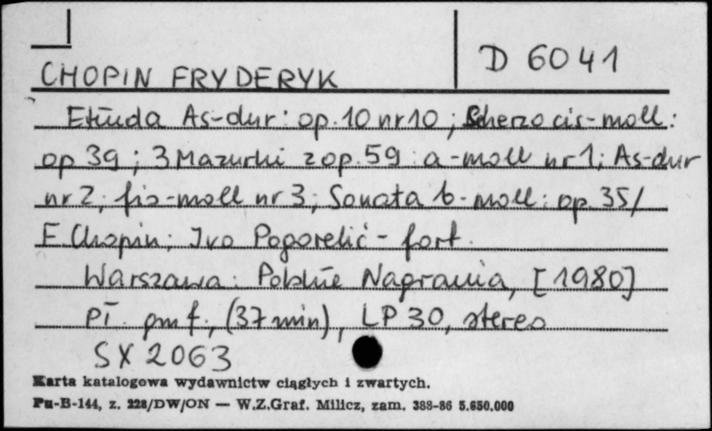 D 6041
CHOPIN FRYDERYK
Etiuda As-dur: op. 10 nr 10 ; Scherzo cis-moll:
op 39 ; 3 Mazurki z op. 59 : a-moll nr 1; As-dur
nr 2; fis-moll nr 3; Sonata b-moll: op. 35/
F. Chopin; Ivo Pogorelić - fort.
Warszawa: Polskie Nagrania, [1980]
Pł. gmf., (37 min), LP 30, stereo
SX 2063
Karta katalogowa wydawnictw ciągłych i zwartych.
Pu-B-144, z. 228/DW/ON — W.Z.Graf. Milicz, zam. 388-86 5.650.000